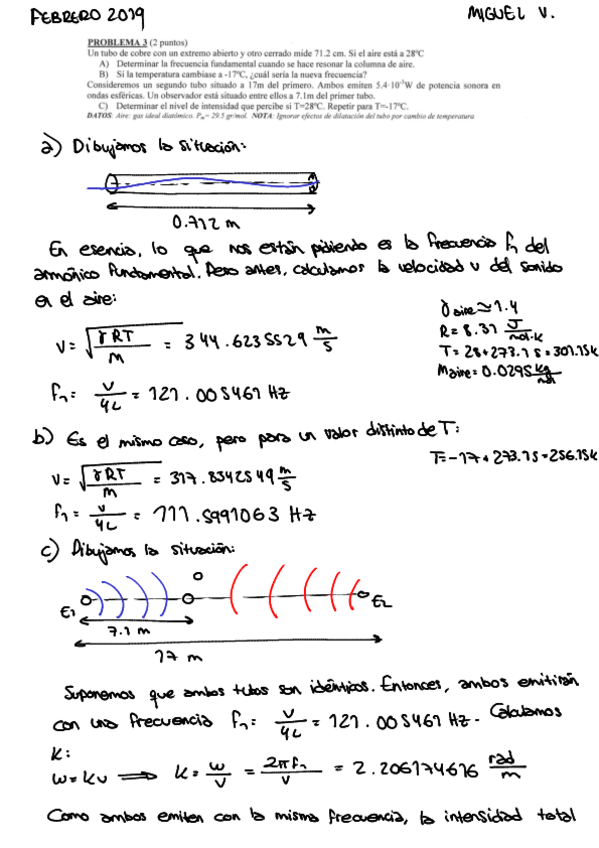 FEBRERO 2019
MIGUEL V.
PROBLEMA 3 (2 puntos)
Un tubo de cobre con un extremo abierto y otro cerrado mide 71.2 cm. Si el aire está a 28ºC
A) Determinar la frecuencia fundamental cuando se hace resonar la columna de aire.
B) Si la temperatura cambiase a -17ºC, ¿cuál sería la nueva frecuencia?
Consideremos un segundo tubo situado a 17m del primero. Ambos emiten 5.4·10⁻³W de potencia sonora en
ondas esféricas. Un observador está situado entre ellos a 7.1m del primer tubo.
C) Determinar el nivel de intensidad que percibe si T=28ºC. Repetir para T=-17ºC.
DATOS: Aire: gas ideal diatómico. Pm= 29.5 gr/mol. NOTA: Ignorar efectos de dilatación del tubo por cambio de temperatura
a) Dibujamos la situación:
0.712 m
En esencia, lo que nos están pidiendo es la frecuencia f₁ del
armónico fundamental. Pero antes, calculamos la velocidad v del sonido
en el aire:
γ aire ≃ 1.4
R = 8.31 J/mol·K
T = 28+273.15=301.15K
M aire = 0.0295 kg/mol
v = √(γRT/M) = 344.6235529 m/s
f₁ = v/4L = 121.005461 Hz
b) Es el mismo caso, pero para un valor distinto de T:
T=-17+273.15=256.15K
v = √(γRT/M) = 317.8342549 m/s
f₁ = v/4L = 111.5991063 Hz
c) Dibujamos la situación:
O
E₁
E₂
7.1 m
17 m
Suponemos que ambos tubos son idénticos. Entonces, ambos emitirán
con una frecuencia f₁ = v/4L = 121.005461 Hz. Calculamos
K:
ω=kv ⟹ k = ω/v = 2πf₁/v = 2.206174616 rad/m
Como ambos emiten con la misma frecuencia, la intensidad total